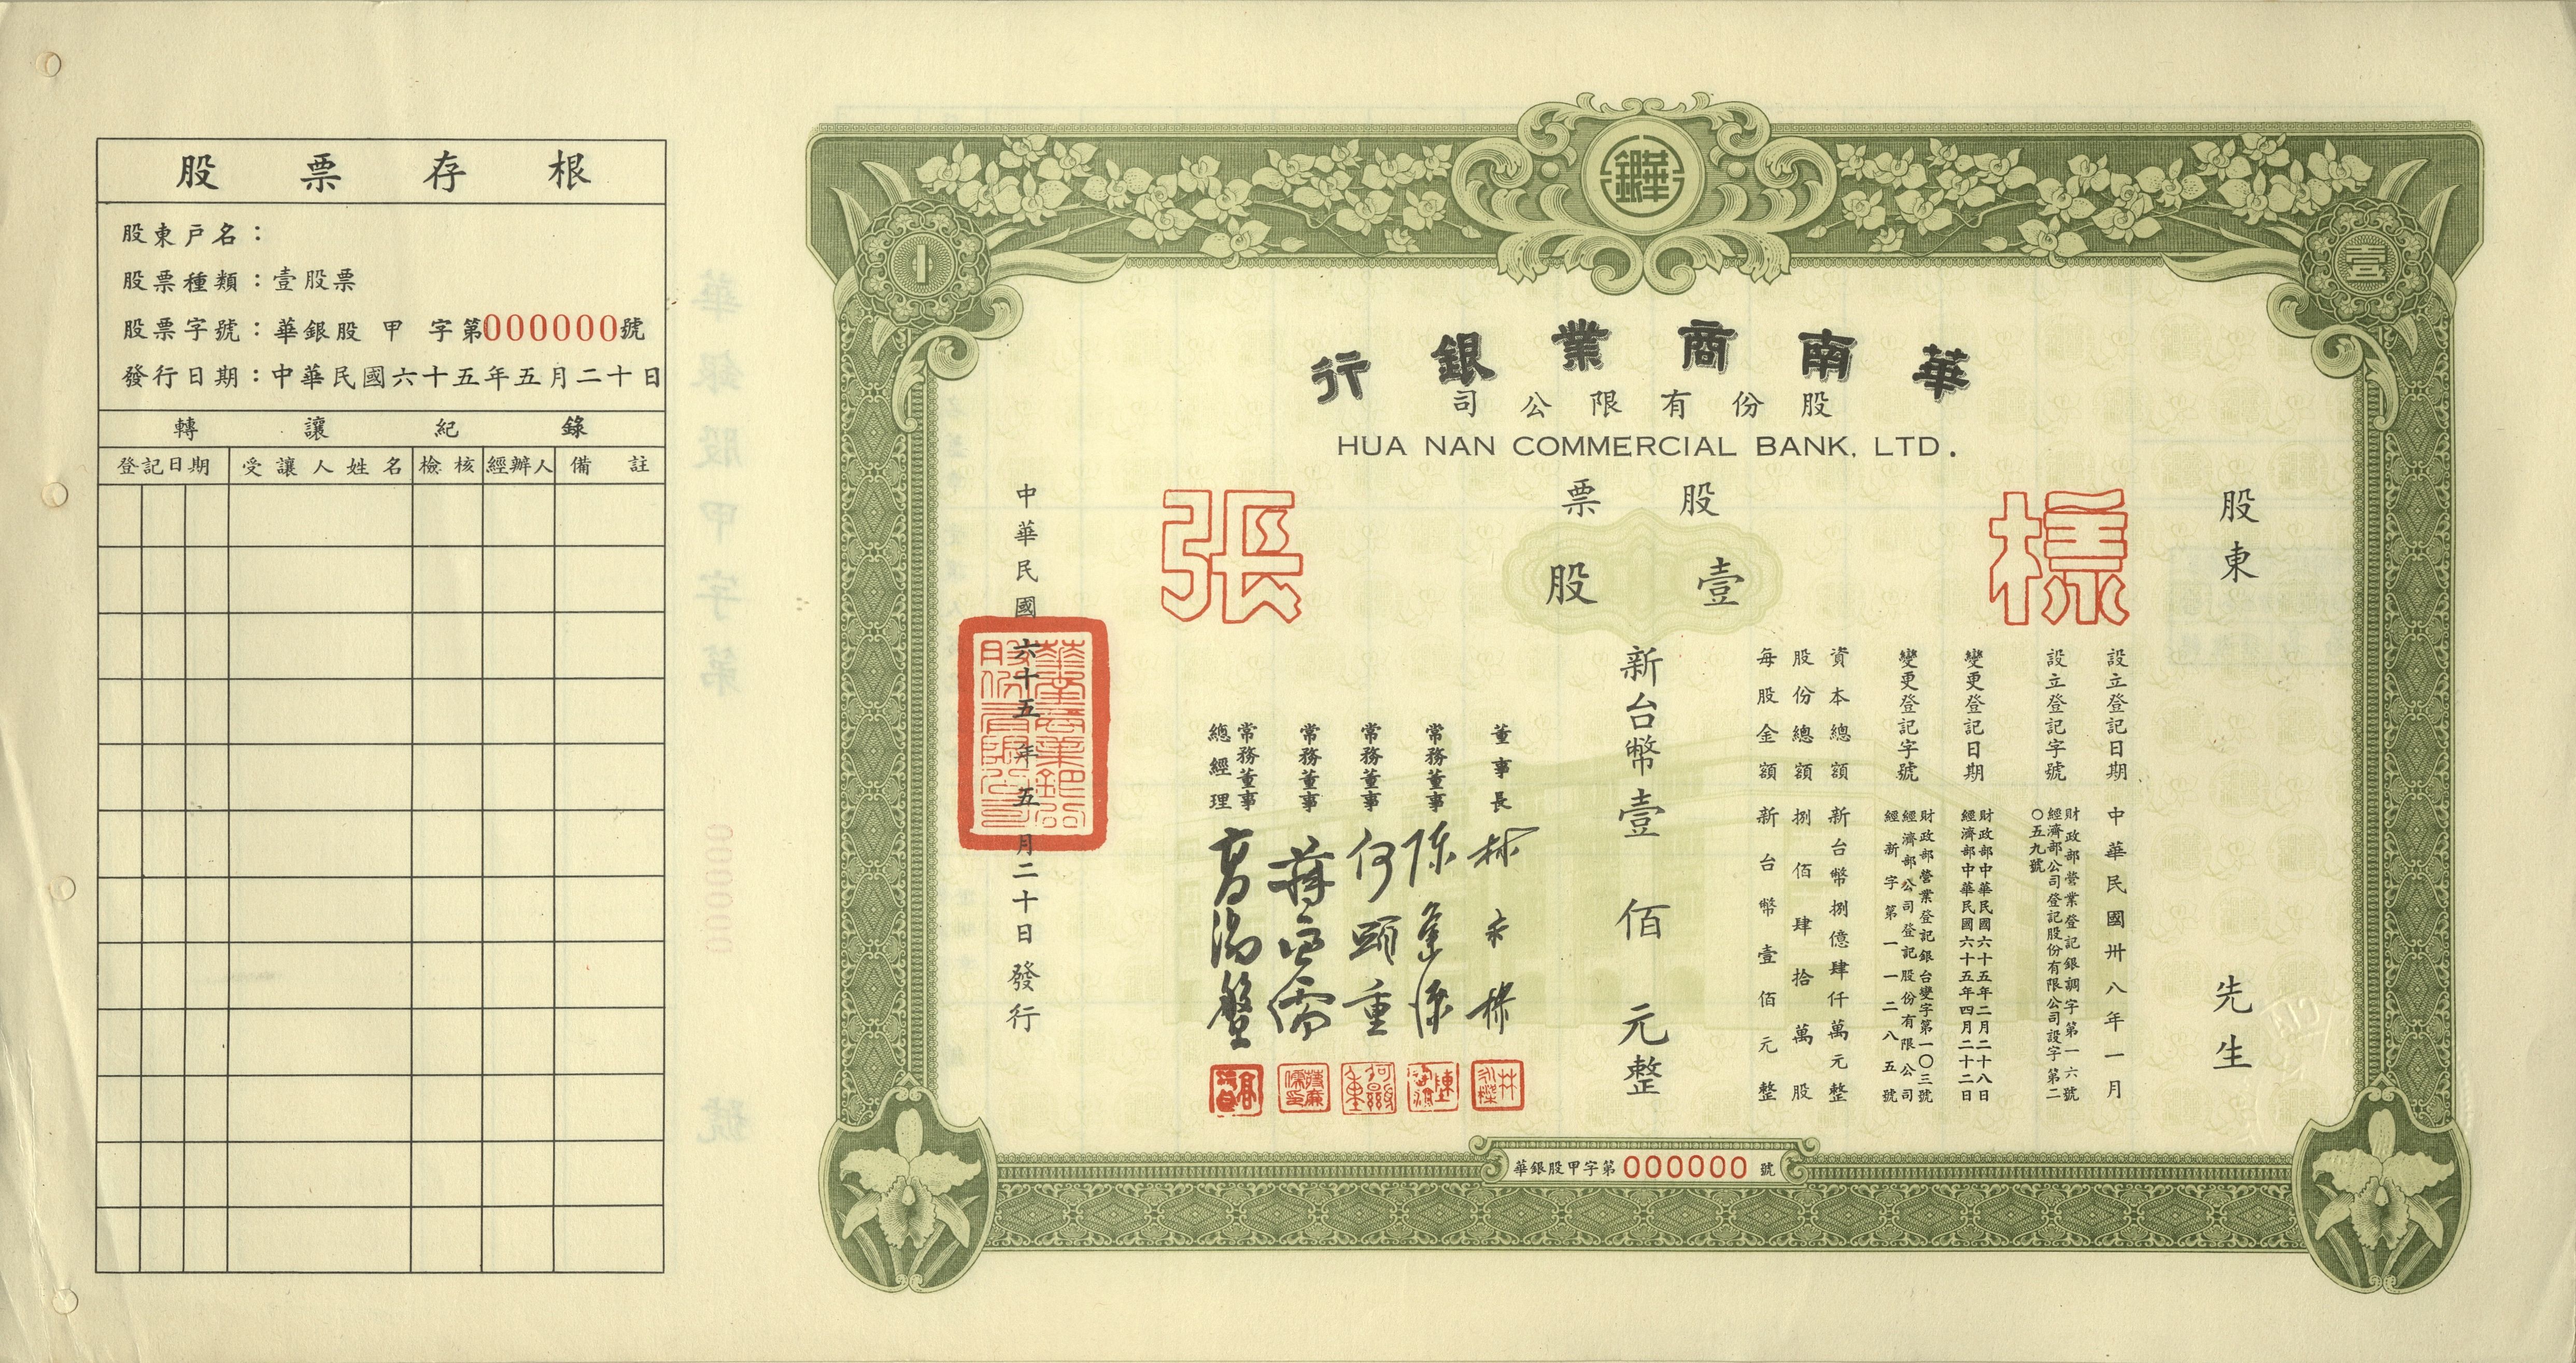 股票存根
股東戶名：
股票種類：壹股票
股票字號：華銀股 甲 字第000000號
發行日期：中華民國六十五年五月二十日
轉讓紀錄
登記日期 受讓人姓名 檢核 經辦人 備註
壹
華南商業銀行
股份有限公司
HUA NAN COMMERCIAL BANK, LTD.
股票
壹股
樣張
股東
先生
設立登記日期 中華民國卅八年一月
設立登記字號 財政部營業登記銀調字第一六號
經濟部公司登記股份有限公司設字第二〇五九號
變更登記日期 財政部中華民國六十五年二月二十八日
經濟部中華民國六十五年四月二十二日
變更登記字號 財政部營業登記銀台變字第一〇三號
經濟部公司登記股份有限公司
經新字第一一二八五號
資本總額 新台幣捌億肆仟萬元整
股份總額 捌佰肆拾萬股
每股金額 新台幣壹佰元整
新台幣壹佰元整
董事長
常務董事
常務董事 何顯重
常務董事
常務董事
總經理
中華民國六十五年五月二十日發行
華南商業銀行股份有限公司
華銀股甲字第000000號